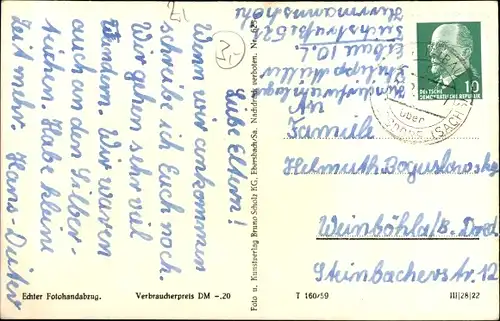 Liebe Eltern!
Wenn wir ankommen
schreib ich Euch noch.
Wir gehen sehr viel
Wandern. Wir waren
auch an den Silber-
Habe keine
Zeit mehr Hans-Dieter
Philipp Müller
Eibau 10. L.
Hermannshöh
An
Familie
Helmuth Boguslowsky
Weinböhla/B. Dresd
Steinbacherstr. 12
DEUTSCHE
DEMOKRATISCHE REPUBLIK
10
über
(SACHS)
Foto u. Kunstverlag Bruno Scholz KG, Ebersbach/Sa. Nachdruck verboten. Nr.
Echter Fotohandabzug.
Verbraucherpreis DM -.20
T 160/59
III|28|22